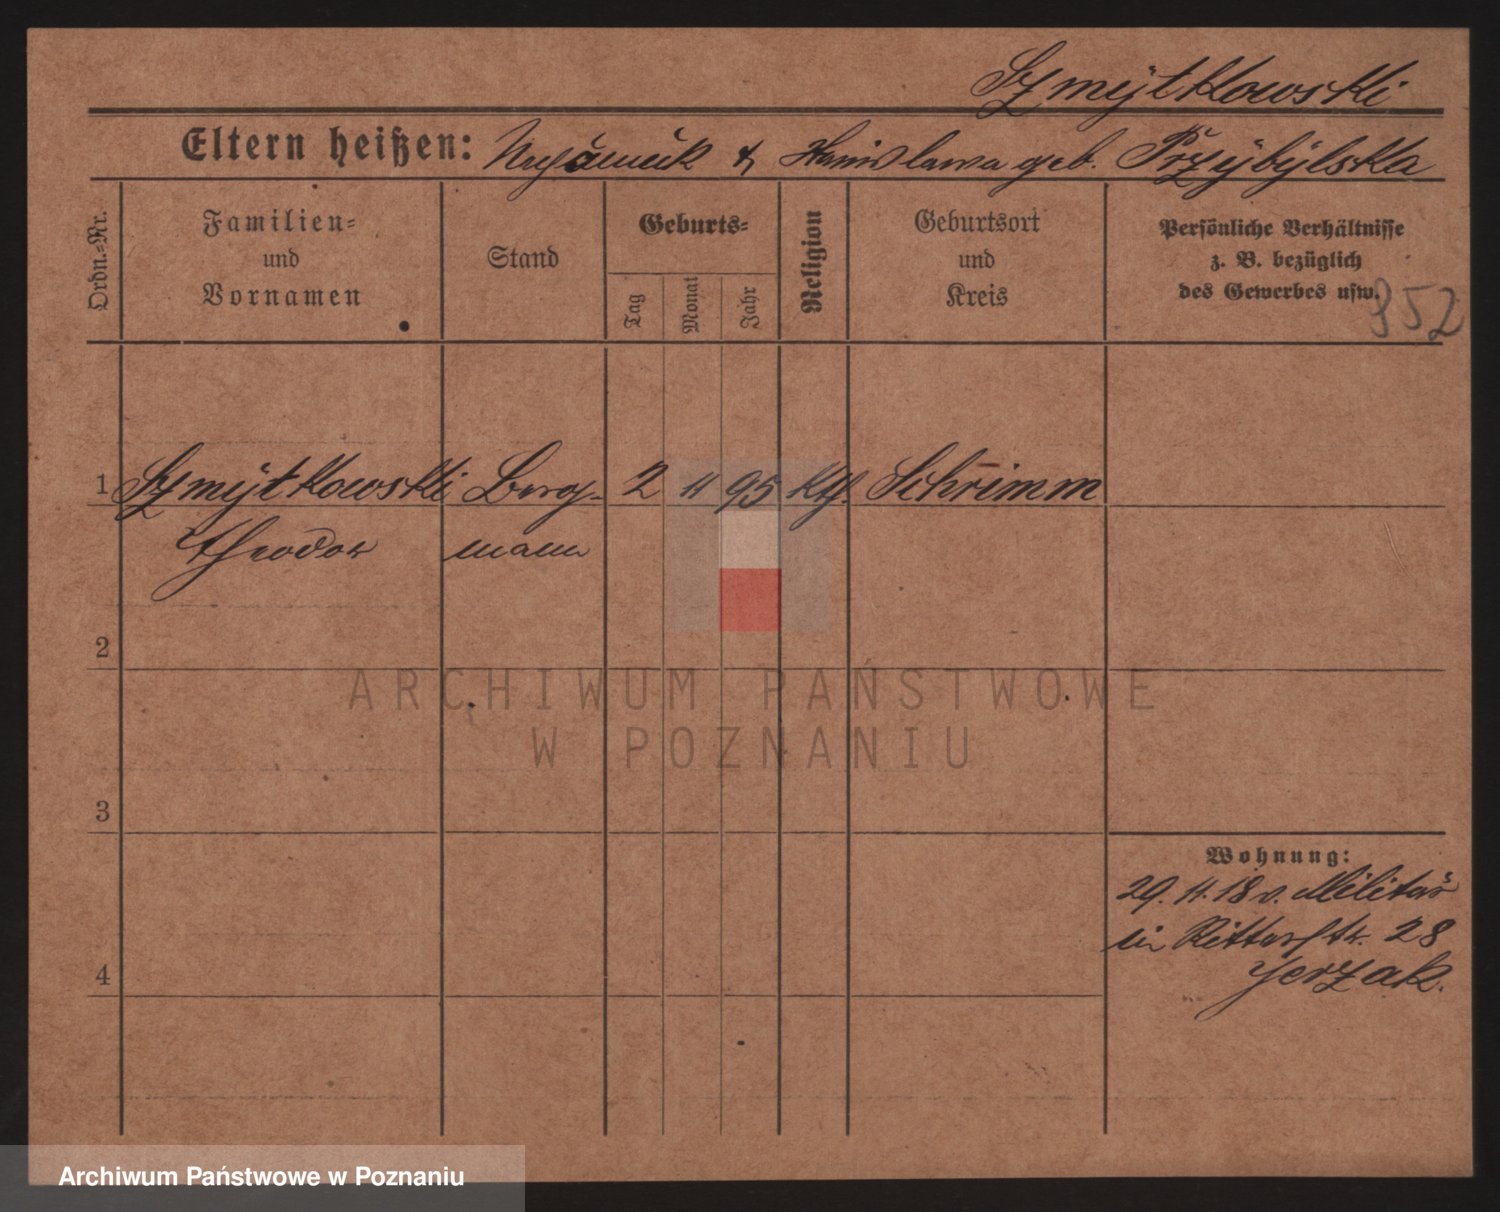 Szmytkowski
Eltern heißen: & Stanislawa geb. Przybylska
Ordn.-Nr.
Familien-
und
Vornamen
Stand
Geburts-
Tag
Monat
Jahr
Religion
Geburtsort
und
Kreis
Persönliche Verhältnisse
z. B. bezüglich
des Gewerbes usw.
352
1 Szmytkowski Berg- 2 11 95 kth. Schrimm
Theodor mann
2
3
4
Wohnung:
29.11.18 v. Militär
in Ritterstr. 28
Jerzak.
ARCHIWUM PAŃSTWOWE
W POZNANIU
Archiwum Państwowe w Poznaniu